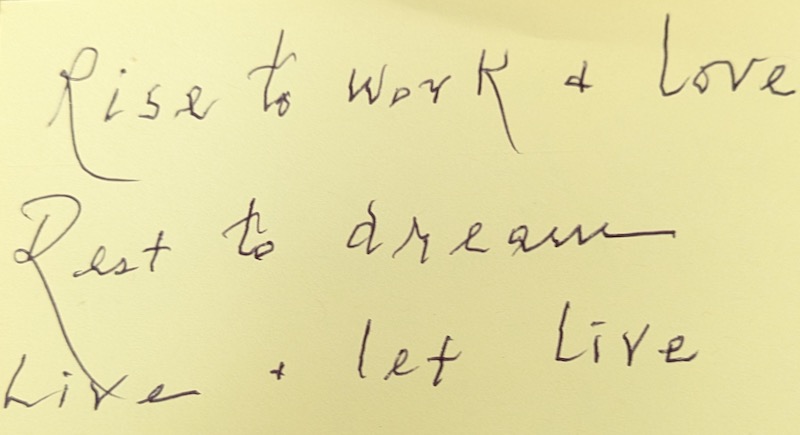 Rise to work + Love
Rest to dream
Live + let Live